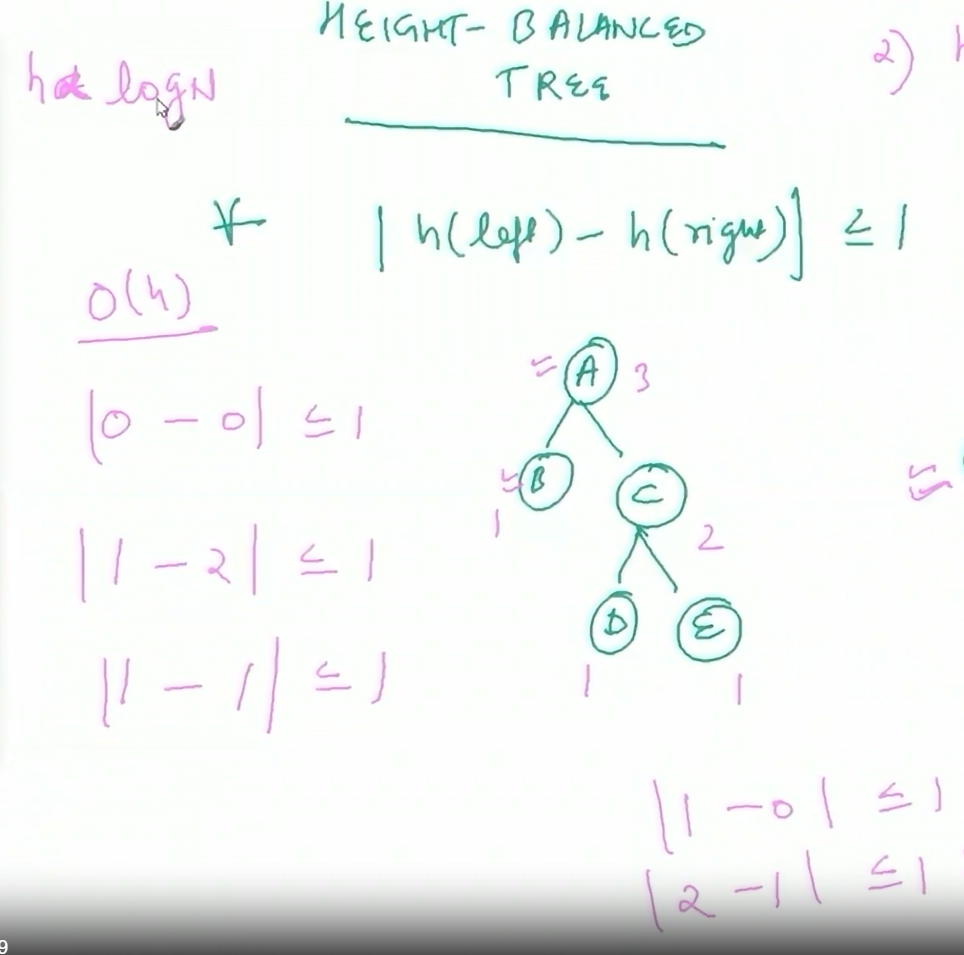 HEIGHT- BALANCED
TREE
h α log N
2) h
∀ | h(left) - h(right)] ≤ 1
O(h)
|0 - 0| ≤ 1
|1 - 2| ≤ 1
|1 - 1| ≤ 1
A 3
B
1
C
2
D E
1 1
|1 - 0| ≤ 1
|2 - 1| ≤ 1
9